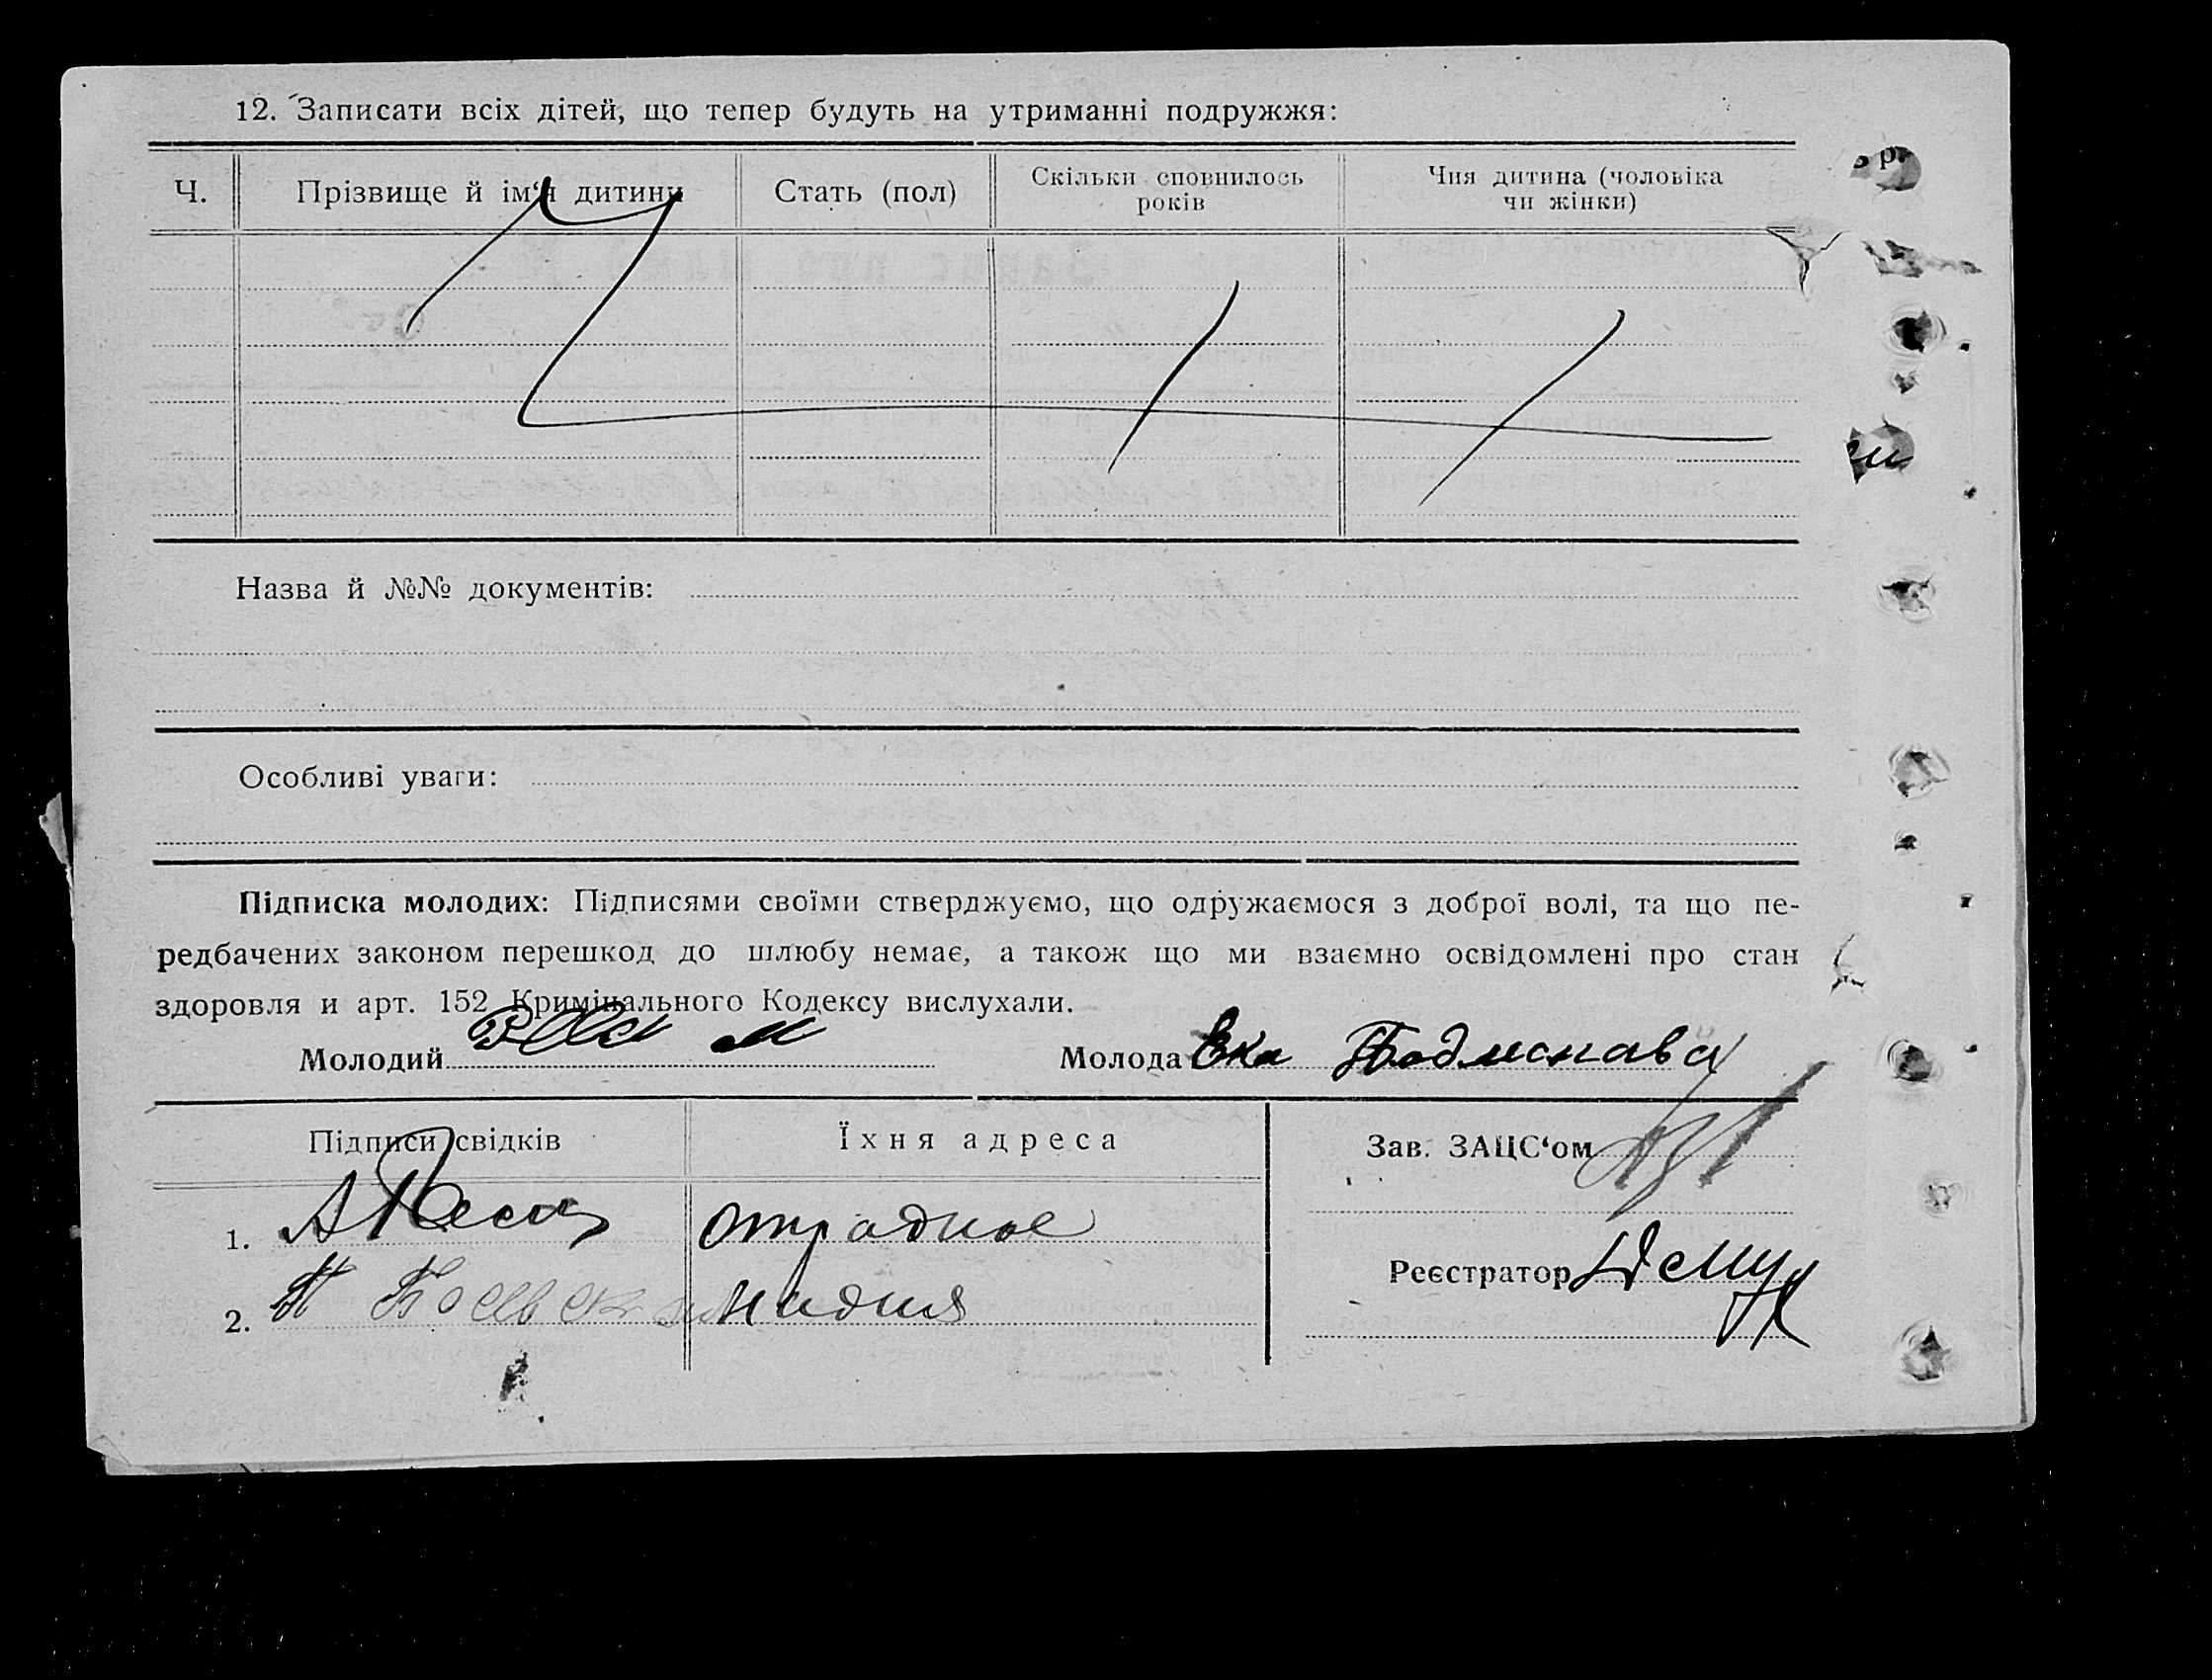 12. Записати всіх дітей, що тепер будуть на утриманні подружжя:
Ч.
Прізвище й ім'я дитини
Стать (пол)
Скільки сповнилось
років
Чия дитина (чоловіка
чи жінки)
Назва й №№ документів:
Особливі уваги:
Підписка молодих: Підписями своїми стверджуємо, що одружаємося з доброї волі, та що пе-
редбачених законом перешкод до шлюбу немає, а також що ми взаємно освідомлені про стан
здоровля и арт. 152 Кримінального Кодексу вислухали.
Молодий
Молода Ека
Підписи свідків
Їхня адреса
Зав. ЗАЦС‘ом
1.
отрадное
Реєстратор
2.